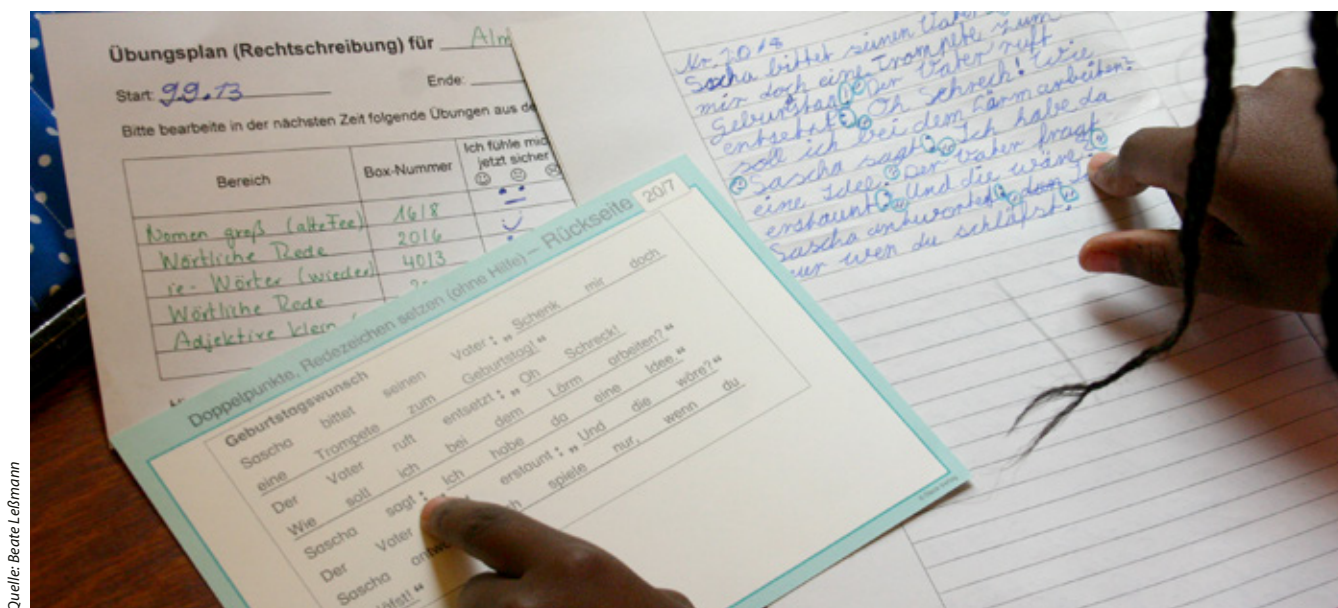 Übungsplan (Rechtschreibung) für Alm
Start: 9.9.13 Ende:
Bitte bearbeite in der nächsten Zeit folgende Übungen aus de
Bereich Box-Nummer Ich fühle mic
jetzt sicher
Nomen groß (alte Fee) 16/8
Wörtliche Rede 20/6
ie-Wörter (wieder) 40/3
Wörtliche Rede
Adjektive klein
Doppelpunkte, Redezeichen setzen (ohne Hilfe) – Rückseite 20/7
Geburtstagswunsch
Sascha bittet seinen Vater: „Schenk mir doch
eine Trompete zum Geburtstag!“
Der Vater ruft entsetzt: „Oh Schreck!
Wie soll ich bei dem Lärm arbeiten?“
Sascha sagt: Ich habe da eine Idee.“
Der Vater erstaunt: „Und die wäre?“
Sascha antw ch spiele nur, wenn du
äfst!“
Sascha bittet seinen Vater
mir doch eine Trompete zum
Geburtstag Der Vater ruft
entsetzt: Oh Schreck! Wie
soll ich bei dem Lärm arbeiten?
Sascha sagt: Ich habe da
eine Idee. Der Vater fragt
erstaunt: Und die wäre?
Sascha antwortet:
nur wen du schläfst!
Quelle: Beate Leßmann